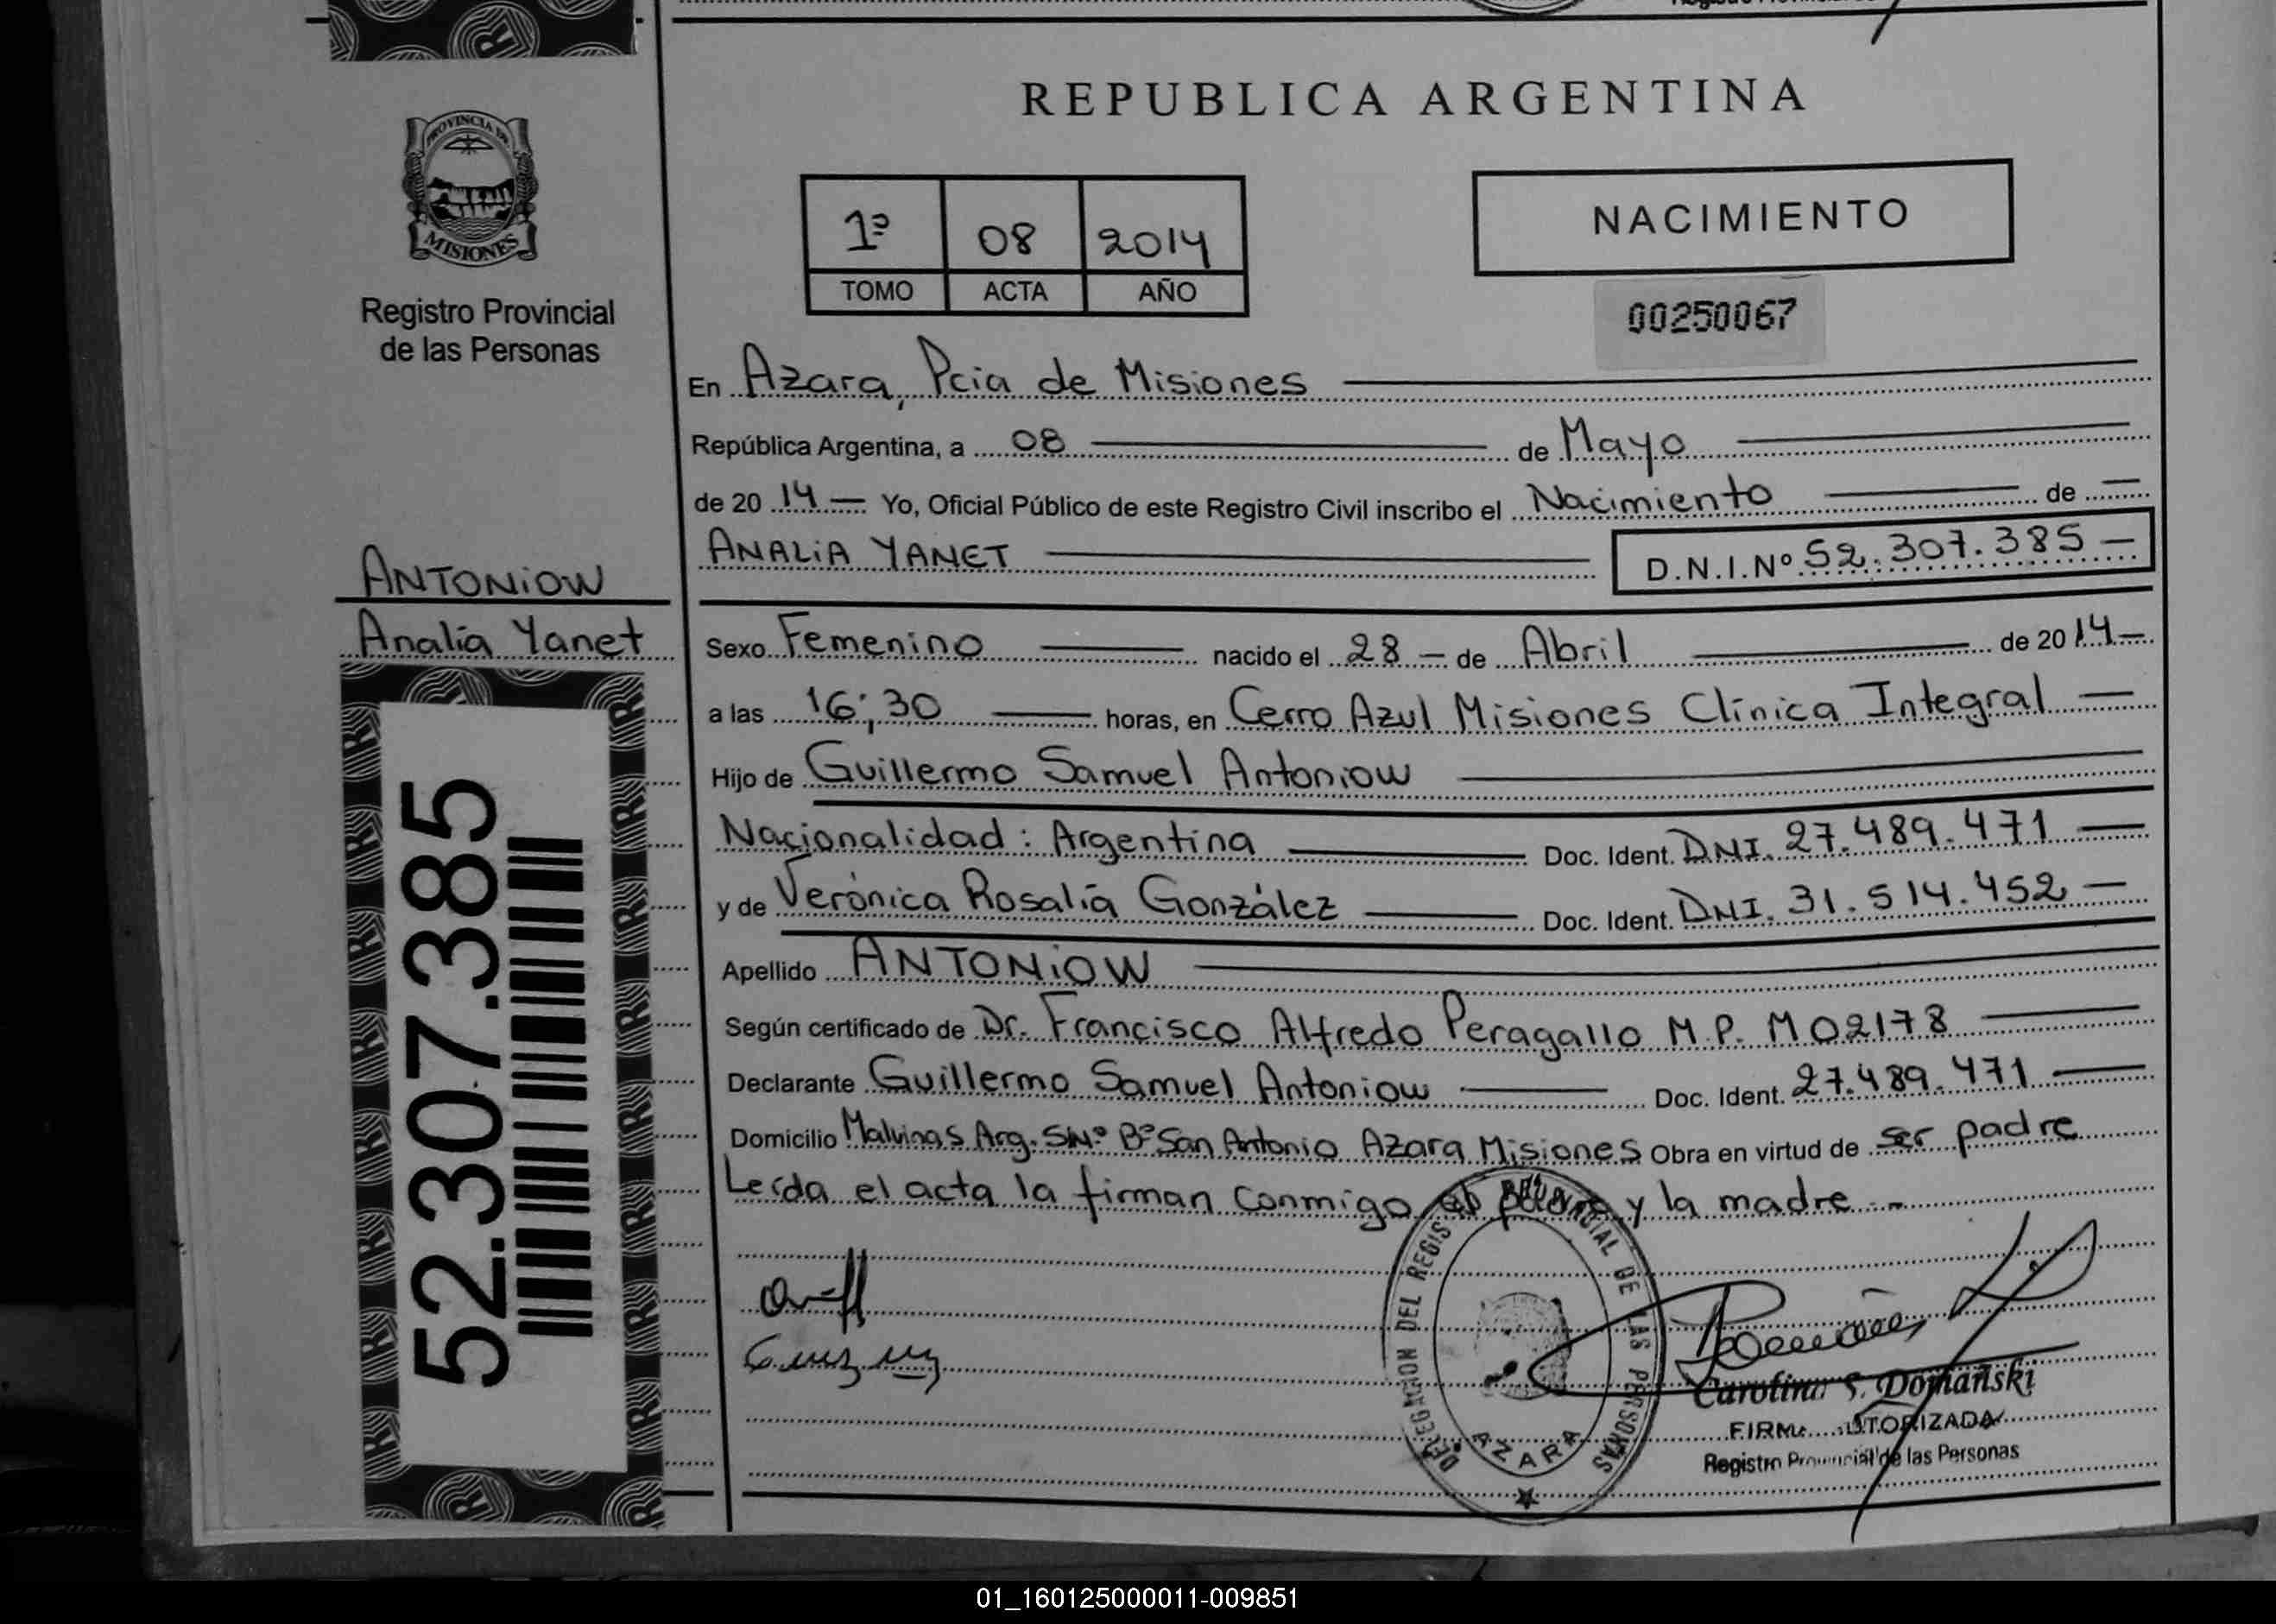 REPUBLICA ARGENTINA
PROVINCIA DE
MISIONES
Registro Provincial
de las Personas
1º 08 2014
TOMO ACTA AÑO
NACIMIENTO
00250067
En Azara, Pcia de Misiones
República Argentina, a 08 de Mayo
de 20 14 — Yo, Oficial Público de este Registro Civil inscribo el Nacimiento de —
ANALIA YANET
D.N.I.Nº 52.307.385 —
ANTONIOW
Analía Yanet
52.307.385
Sexo Femenino nacido el 28 — de Abril de 20 14 —
a las 16;30 horas, en Cerro Azul Misiones Clínica Integral —
Hijo de Guillermo Samuel Antoniow
Nacionalidad: Argentina Doc. Ident. DNI. 27.489.471 —
y de Verónica Rosalía González Doc. Ident. DNI. 31.514.452 —
Apellido ANTONIOW
Según certificado de Dr. Francisco Alfredo Peragallo M.P. M02178
Declarante Guillermo Samuel Antoniow Doc. Ident. 27.489.471
Domicilio Malvinas Arg. S/Nº Bº San Antonio Azara Misiones Obra en virtud de ser padre
Leída el acta la firman conmigo el padre y la madre.-
DELEGACION DEL REGIS PROVINCIAL DE LAS PERSONAS
AZARA
Carolina S. Domañski
FIRMA AUTORIZADA
Registro Provincial de las Personas
01_160125000011-009851